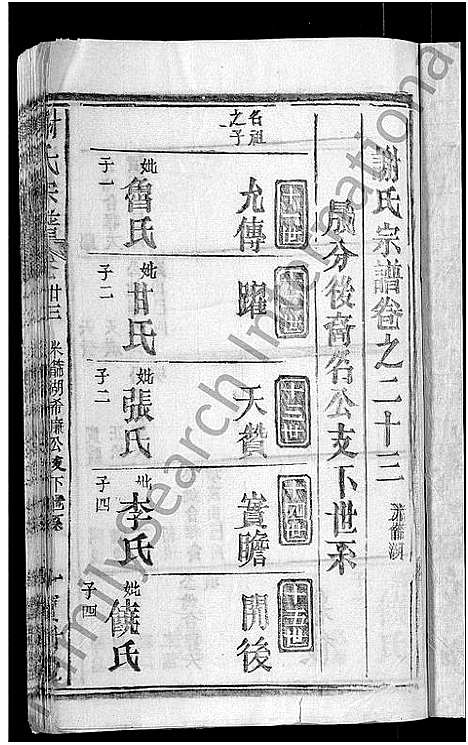 謝氏宗譜卷之二十三 米篩湖
晟分後裔名公支下世系
十一世
允傳
名祖之子
妣魯氏
子一
十二世
躍
妣甘氏
子二
十三世
天贊
妣張氏
子二
十四世
賓瞻
妣李氏
子四
十五世
開後
妣饒氏
子四
謝氏宗譜 卷廿三 米篩湖希廉公支下世系
FamilySearch International